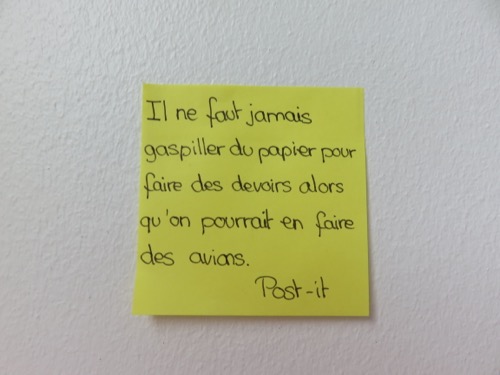 Il ne faut jamais
gaspiller du papier pour
faire des devoirs alors
qu'on pourrait en faire
des avions.
Post-it